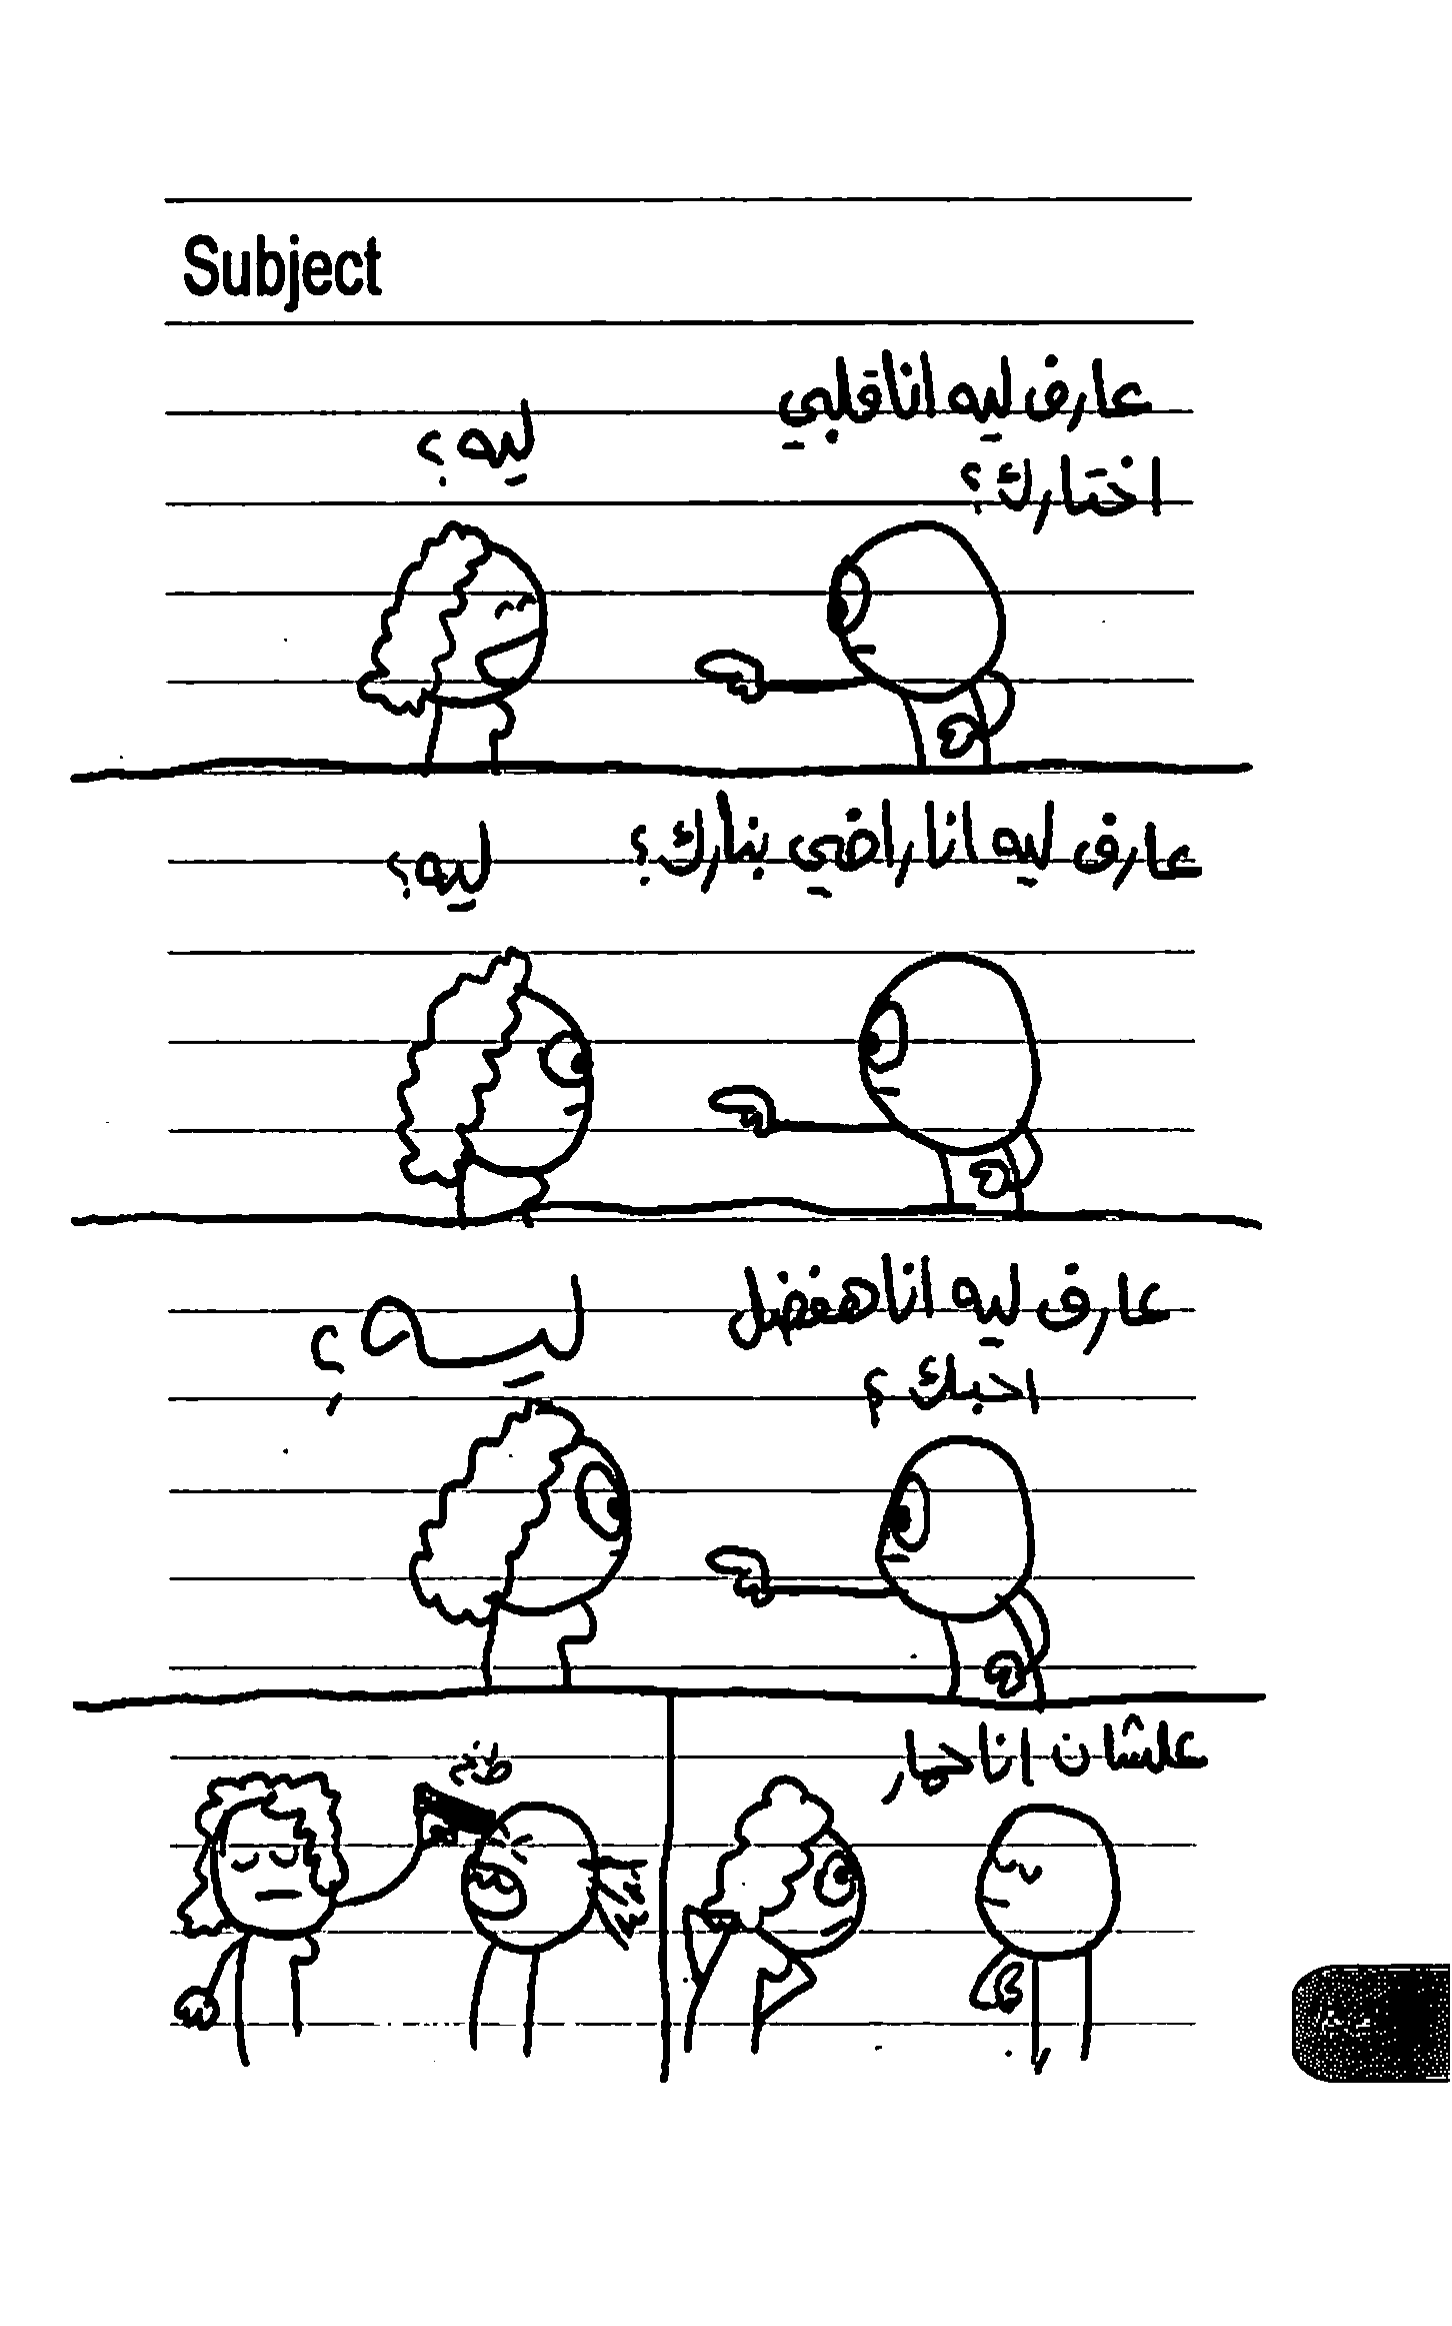 Subject
عارف ليه انا قلبي
اختارك؟
ليه؟
عارف ليه انا راضي بنارك؟
ليه؟
عارف ليه انا هفضل
احبك؟
ليـــه؟
علشان انا حمار